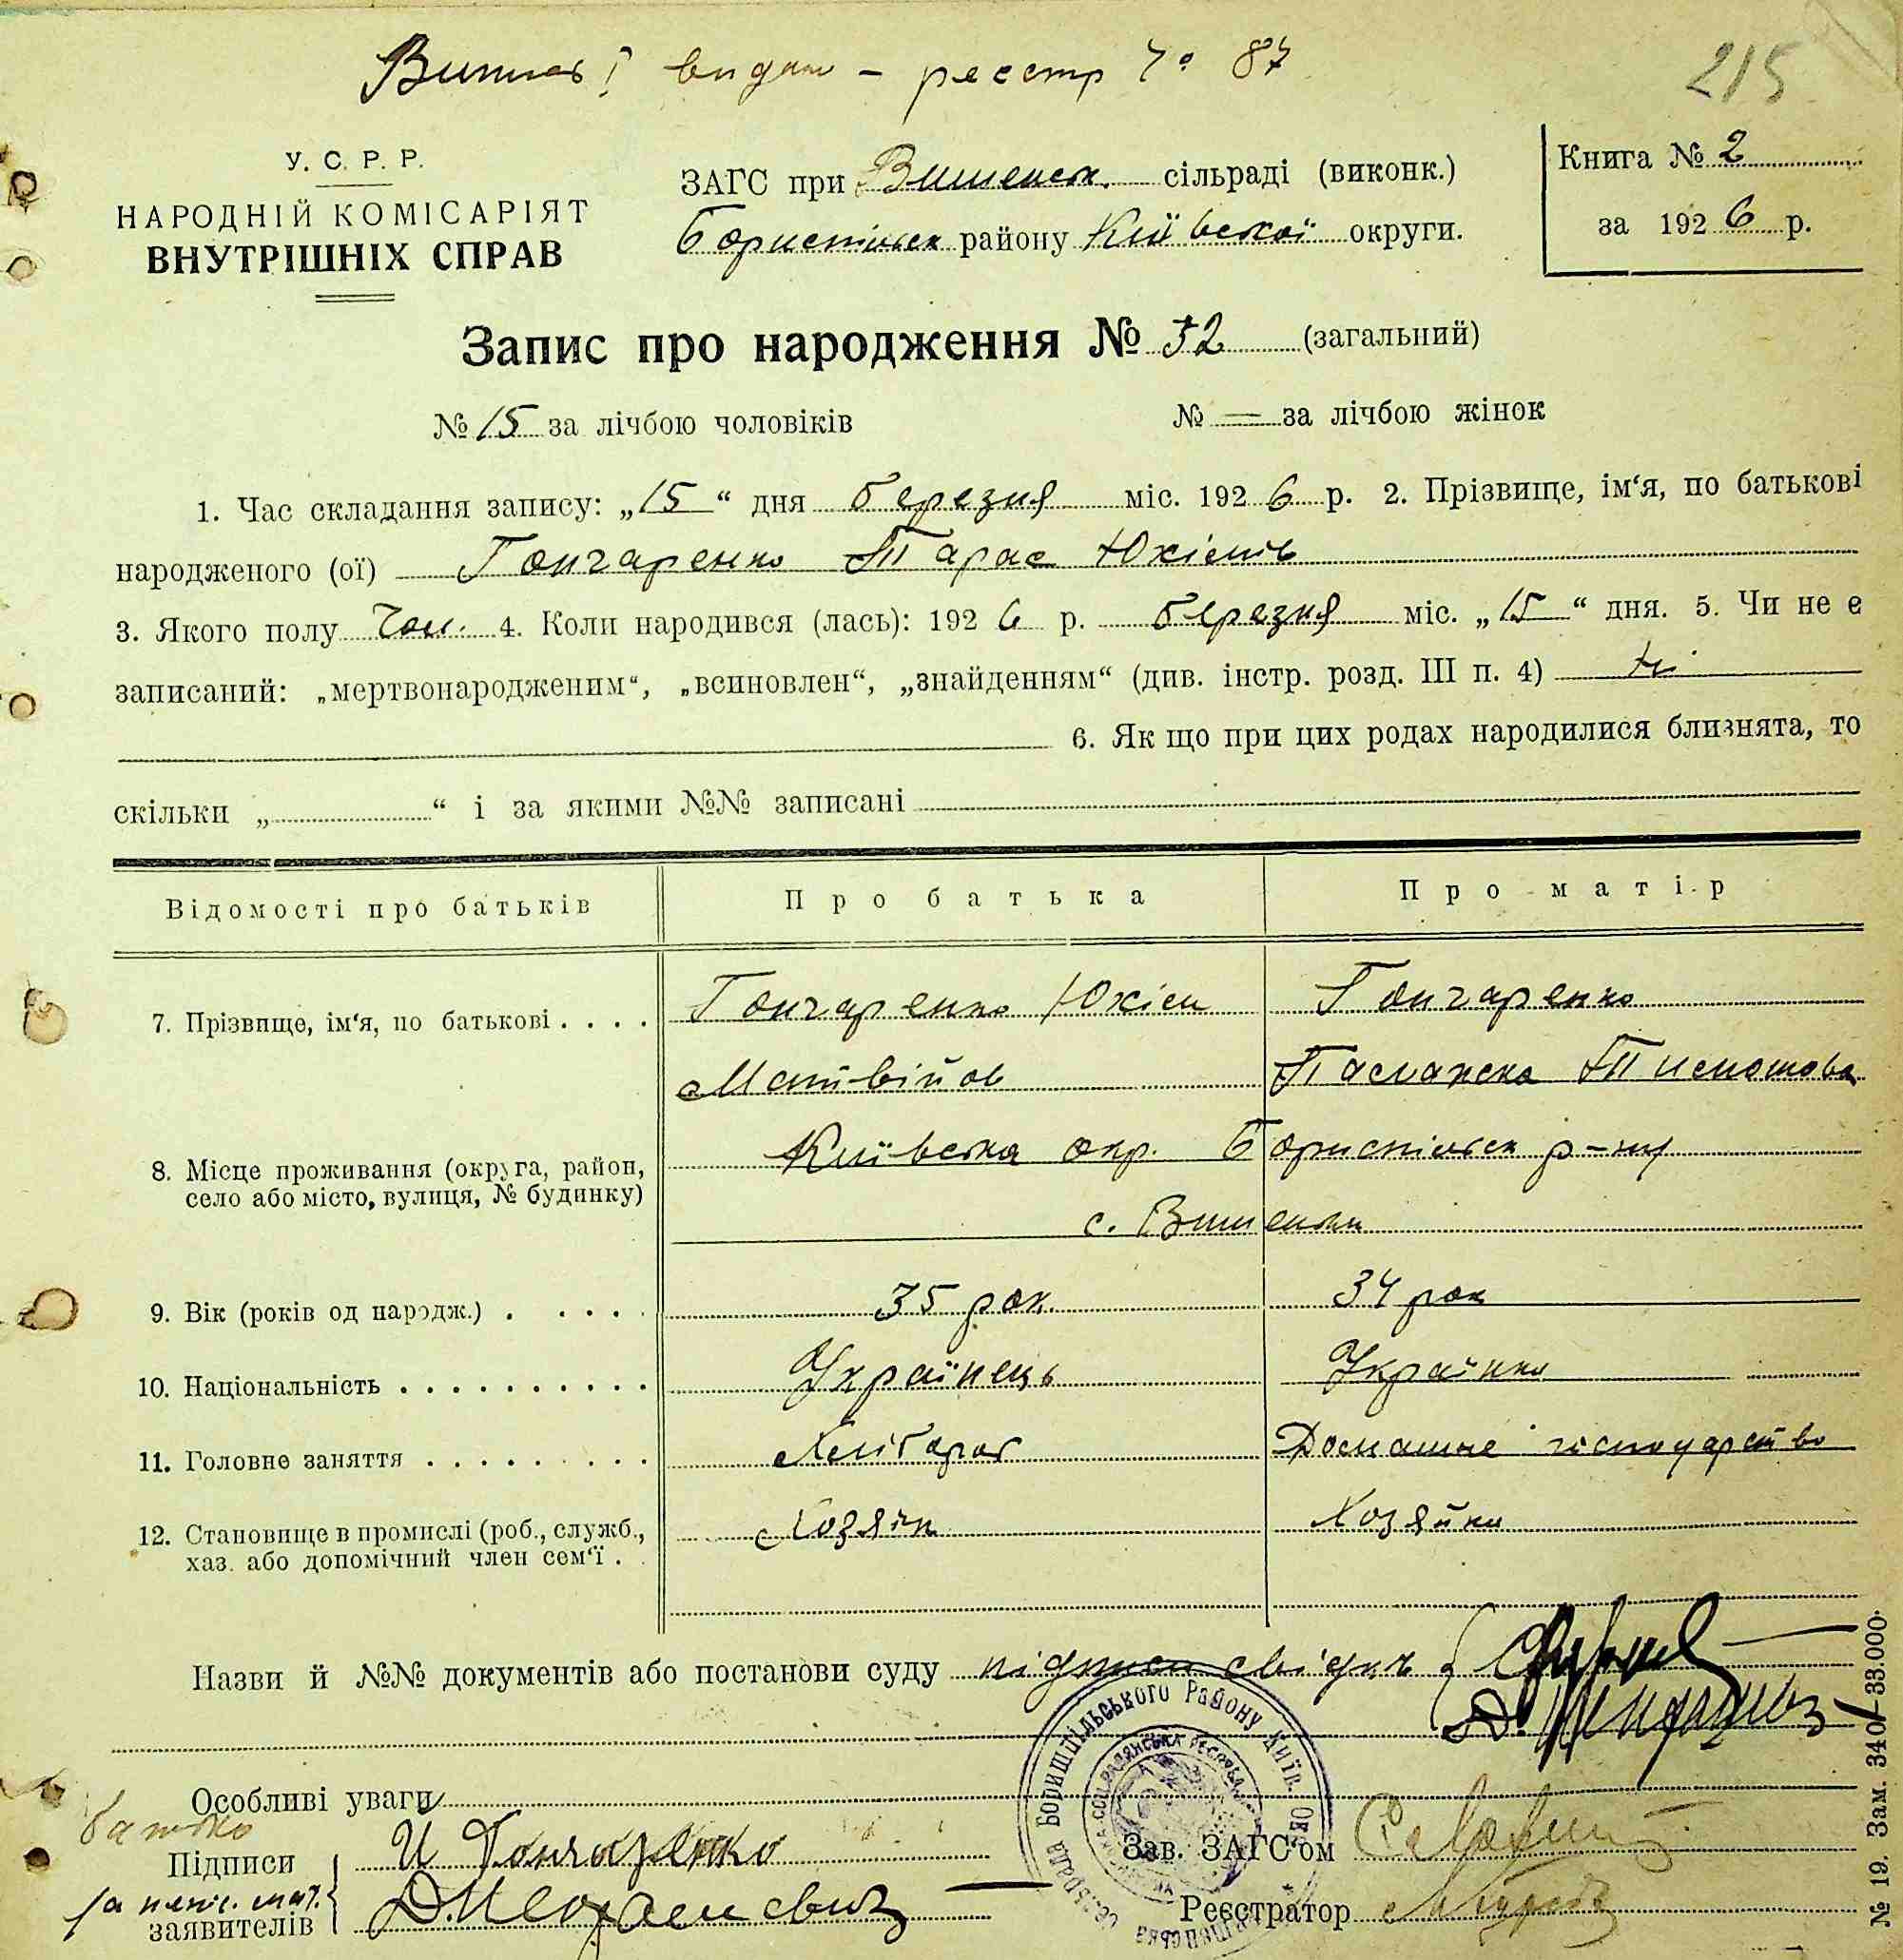 Випись видан – реєстр № 87
215
У. С. Р. Р.
НАРОДНІЙ КОМІСАРІЯТ
ВНУТРІШНІХ СПРАВ
ЗАГС при Вишенськ. сільраді (виконк.)
Бориспільск району Київської округи.
Книга № 2
за 1926 р.
Запис про народження № 32 (загальний)
№ 15 за лічбою чоловіків № = за лічбою жінок
1. Час складання запису: „15“ дня березня міс. 1926 р. 2. Прізвище, ім‘я, по батькові
народженого (ої) Гончаренко Тарас Юхімів
3. Якого полу Чол. 4. Коли народився (лась): 1926 р. березня міс. „15“ дня. 5. Чи не є
записаний: „мертвонародженим“, „всиновлен“, „знайденням“ (див. інстр. розд. III п. 4) ні
6. Як що при цих родах народилися близнята, то
скільки „ “ і за якими №№ записані
Відомості про батьків Про батька Про матір
7. Прізвище, ім‘я, по батькові . . . . Гончаренко Юхім Гончаренко
Матвійов Пасажска Тимошова
8. Місце проживання (округа, район, Київська окр. Бориспільск р-ну
село або місто, вулиця, № будинку) с. Вишеньки
9. Вік (років од народж.) . . . . . 35 рок. 34 рок
10. Національність . . . . . . . . . . Українець Українка
11. Головне заняття . . . . . . . . . Хлібороб Домашнє господарство
12. Становище в промислі (роб., служб., Хозяін Хозяйка
хаз. або допомічний член сем‘ї . .
Назви й №№ документів або постанови суду підписи свідків
Особливі уваги
батько
Підписи И Гончаренко Зав. ЗАГС‘ом
за непис. мат.
заявителів Реєстратор
Бориспільського Району Київ. Окр.
№ 19. Зам. 340—33.000.